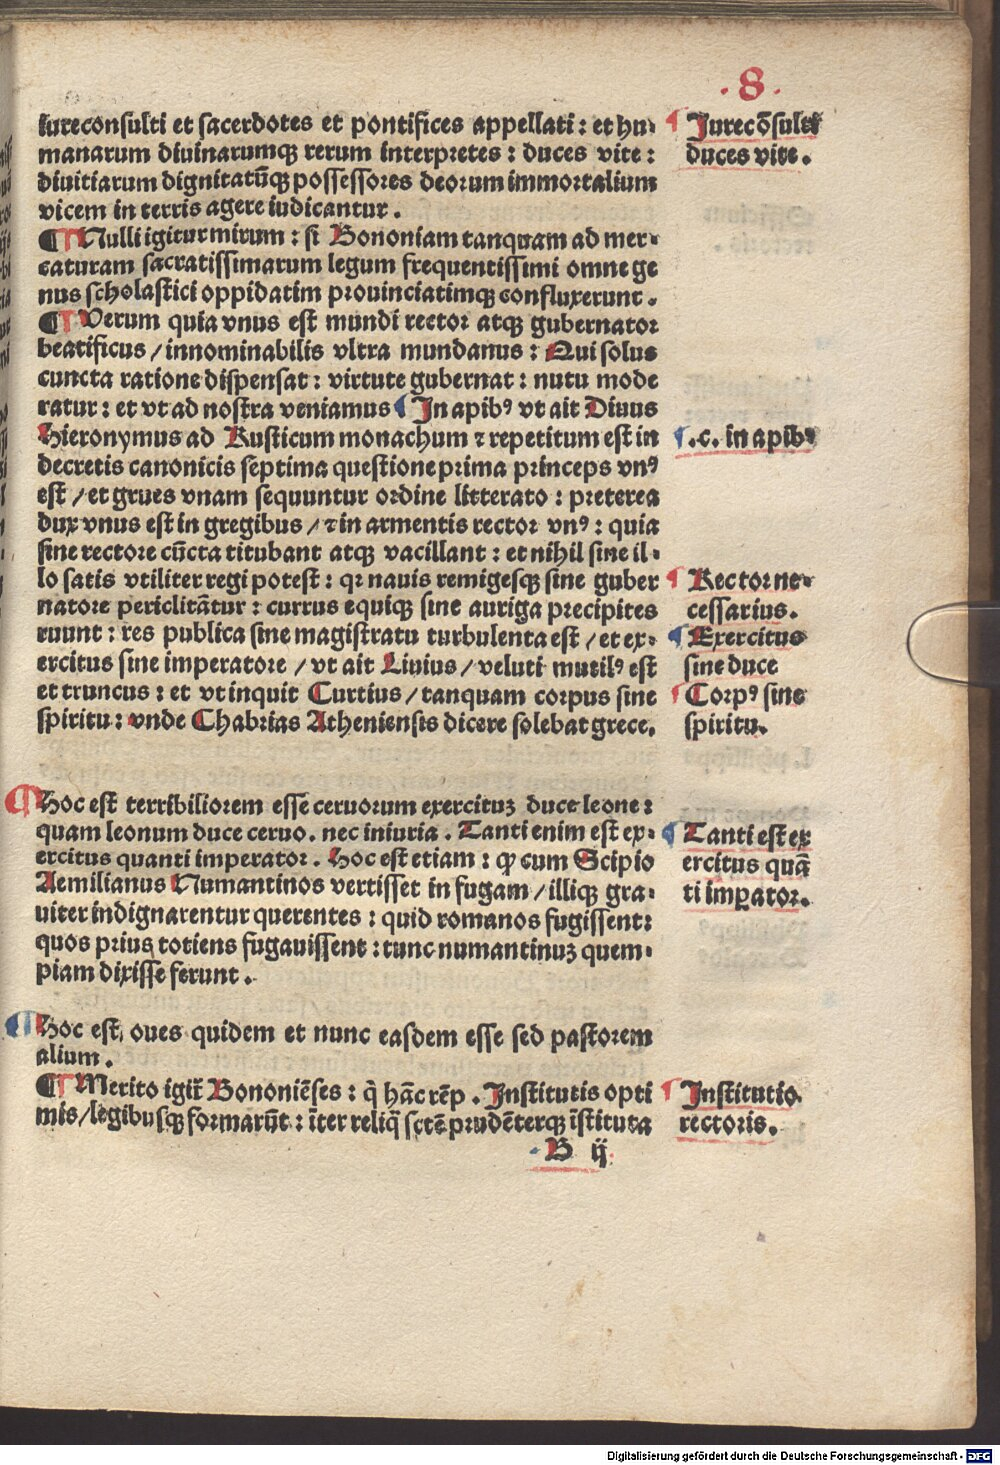 .8.
iureconsulti et sacerdotes et pontifices appellati : et hu-
manarum diuinarumqꝫ rerum interpretes : duces vite :
diuitiarum dignitatūqꝫ possessores deorum immortalium
vicem in terris agere iudicantur .
¶ Nulli igitur mirum : si Bononiam tanquam ad mer-
caturam sacratissimarum legum frequentissimi omne ge
nus scholastici oppidatim prouinciatimqꝫ confluxerunt .
¶ Uerum quia vnus est mundi rector atqꝫ gubernator
beatificus / innominabilis vltra mundanus : Qui solus
cuncta ratione dispensat : virtute gubernat : nutu mode
ratur : et vt ad nostra veniamus ¶ In apibꝰ vt ait Diuus
Hieronymus ad Rusticum monachum ⁊ repetitum est in
decretis canonicis septima questione prima princeps vnꝰ
est / et grues vnam sequuntur ordine litterato : preterea
dux vnus est in gregibus / ⁊ in armentis rector vnꝰ : quia
sine rectore cūcta titubant atqꝫ vacillant : et nihil sine il-
lo satis vtiliter regi potest : qꝛ nauis remigesqꝫ sine guber
natore periclitātur : currus equiqꝫ sine auriga precipites
ruunt : res publica sine magistratu turbulenta est / et ex-
ercitus sine imperatore / vt ait Liuius / veluti mutilꝰ est
et truncus : et vt inquit Curtius / tanquam corpus sine
spiritu : vnde Chabrias Atheniensis dicere solebat grece.
¶ Hoc est terribiliorem esse ceruorum exercituꝫ duce leone :
quam leonum duce ceruo . nec iniuria . Tanti enim est ex-
ercitus quanti imperator . Hoc est etiam : ꝙ cum Scipio
Aemilianus Numantinos vertisset in fugam / illiqꝫ gra-
uiter indignarentur querentes : quid romanos fugissent :
quos prius totiens fugauissent : tunc numantinuꝫ quem-
piam dixisse ferunt .
¶ Hoc est, oues quidem et nunc easdem esse sed pastorem
alium .
¶ Merito igit̄ Bononiēses : q̄ hāc rēp . Institutis opti
mis / legibusqꝫ formarūt : īter reliq̄ sctē prudēterqꝫ īstituta
B ij
¶ Jurecōsulti
duces vite .
¶ .c. in apibꝰ
¶ Rector ne-
cessarius .
¶ Exercitus
sine duce
¶ Corpꝰ sine
spiritu .
¶ Tanti est ex
ercitus quā
ti imꝑator .
¶ Institutio
rectoris .
Digitalisierung gefördert durch die Deutsche Forschungsgemeinschaft - DFG